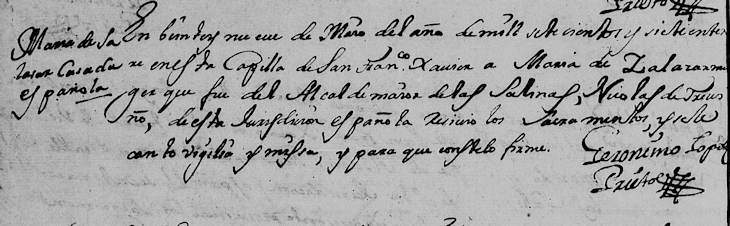 Prieto
Maria de Sa
lasar Casada
española
En beinte y nueve de Março del año de mill setecientos y siete enter
re en esta Capilla de San Fran.co Xavier a Maria de Zalazar mu
ger que fue del Alcalde maior de las Salinas, Nicolas de Trevi
ño, de esta Jurisdicion española recivio los Sacramentos, y se le
canto vigilia y missa, y para que conste lo firme.
Geronimo Lopez
Prieto